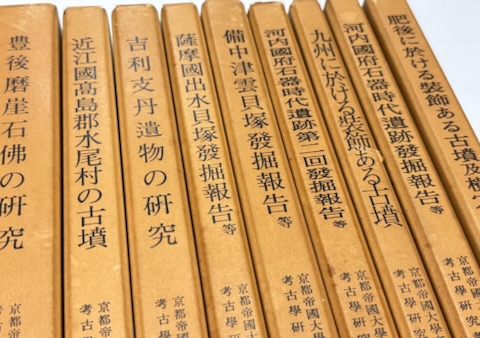 肥後に於ける裝飾ある古墳及横
京都帝國大學
考古學研究報
河内國府石器時代遺跡發掘報告 等
京都帝國大學
考古學研究
九州に於ける裝飾ある古墳
京都帝國大
考古學研究
河内國府石器時代遺跡第二回發掘報告 等
京都帝國大學
考古學研
備中津雲貝塚發掘報告 等
京都帝國大
考古學研
薩摩國出水貝塚發掘報告 等
京都帝國
考古學研
吉利支丹遺物の研究
京都帝國
考古學
近江國高島郡水尾村の古墳
京都帝國
考古學
豊後磨崖石佛の研究
京都帝
考古學